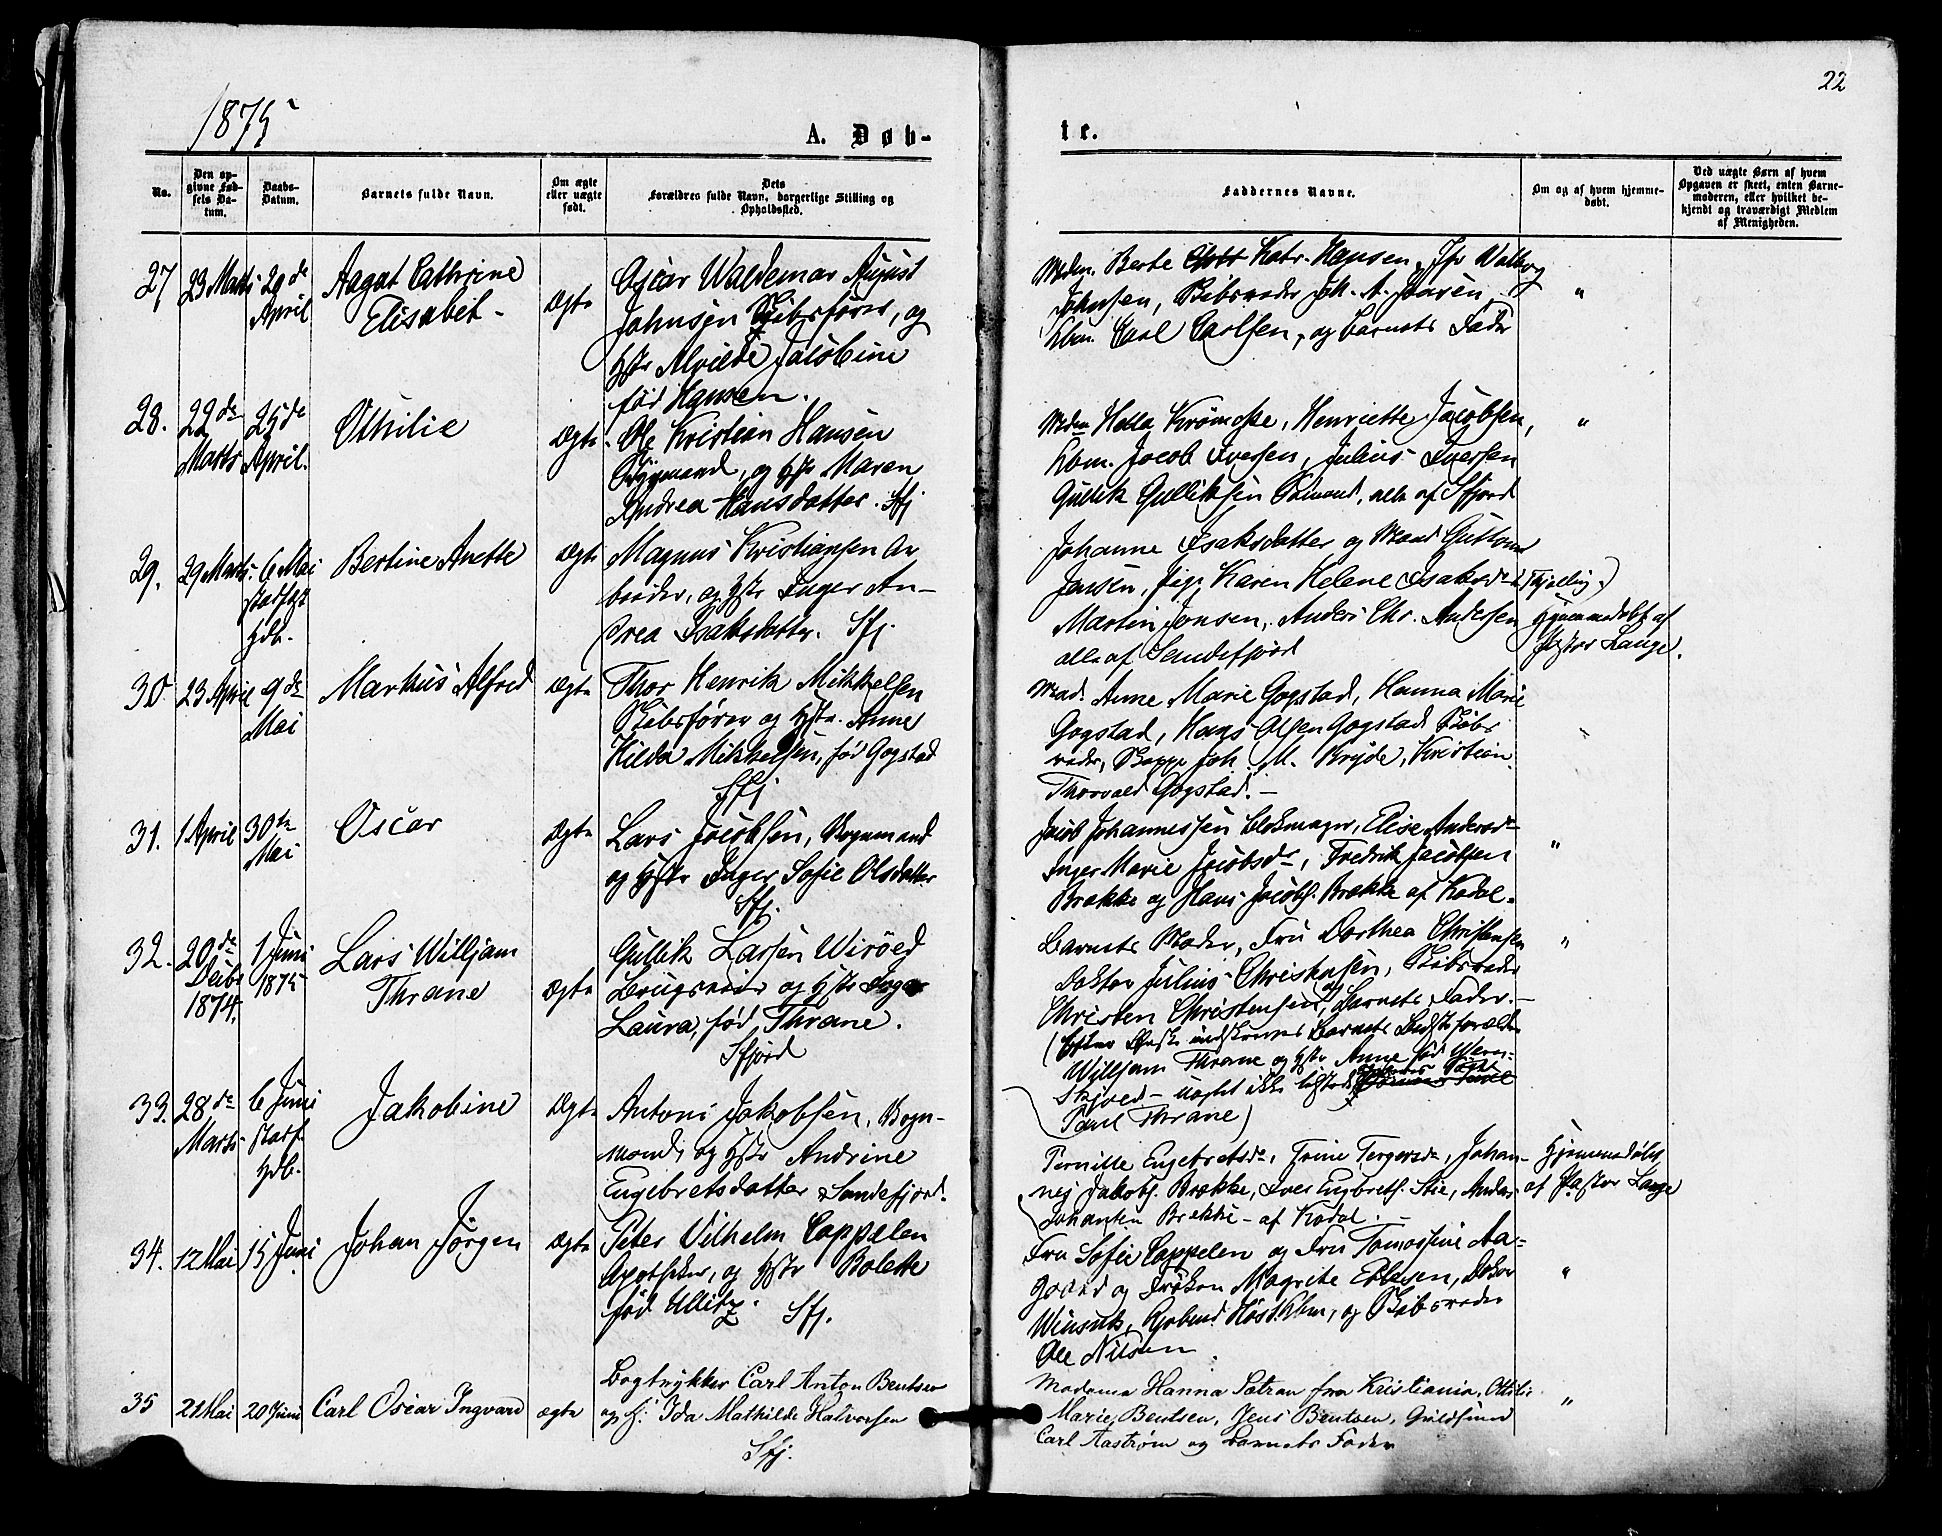 22
1875
A. Døb-
te.
No.
Den op-
givne Fød-
sels Da-
tum.
Daabs-
Datum.
Barnets fulde Navn.
Om ægte
eller uægte
født.
Dets
Forældres fulde Navn, borgerlige Stilling og
Opholdssted.
Faddernes Navne.
Om og af hvem hjemme-
døbt.
Ved uægte Børn af hvem
Opgaven er skeet, enten Barne-
moderen, eller hvilket be-
kjendt og troværdigt Medlem
af Menigheden.
27 23 Marts 29de April
Aagot Cathrine
Elisabet -
Ægte
Oscar Waldemar August
Johnsen Skibsfører, og
Hstr Alvilde Jacobine
født Hansen.
Berte Katr. Hansen, Jfr Valborg
Johnsen, Skibsreder Joh. A.
Kbm. Carl Carlsen, og barnets Fader
"
28. 22de Marts 25de April.
Othilie
Ægte
Ole Kristian Hansen
Bygmand, og Hstr Maren
Andrea Hansdatter. Sfj
Henriette Jacobsen,
Kbm. Jacob Iversen, Julius Iversen
Gullik Gulliksen, alle af Sfjord
"
29. 29 Marts 6 Mai stadfest Hdb.
Bertine Anette
Ægte
Magnus Kristiansen Ar
beider, og Hstr Inger An-
drea Isaksdatter. Sfj.
Johanne Isaksdatter og Mand Guttorm
Jensen, Pige Karen Helene Isaksdr
Martin Jonsen, Anders Chr. Andersen
alle af Sandefjord
Hjemmedøbt af
Pastor Lange.
30 23 April 9de Mai
Markus Alfred
Ægte
Thor Henrik Mikkelsen
Skibsfører og Hstr. Anne
Hilda Mikkelsen, født Gogstad
Sfj
Mad. Anne Marie Gogstad, Hanna Marie
Gogstad, Hans Olsen Gogstad Skibs
reder, Joh. M. Bryde, Kristian
Thorvald Gogstad. -
31. 1 April 30te Mai
Oscar
Ægte
Lars Jacobsen, Bygmand
og Hstr Inger Sofie Olsdatter
Sfj.
Jacob Johannessen Blokmager, Elise Andersdr
Inger Marie Jacobsdr, Fredrik Jacobsen
Brække og Hans Jacobs. Brække af Kodal.
"
32. 20de Decbr 1874. 1 Juni 1875
Lars Willjam
Thrane
Ægte
Gullik Larsen Wirøed
Brugseier og Hstr Inger
Laura, født Thrane.
Sfjord
Barnets Moder, Fru Dorthea Christensen
Doktor Julius Christensen, Skibsreder
Christen Christensen, og Barnets Fader. -
(Efter Ønske indskrives Barnets Bedsteforældre
Willjam Thrane og Hstr Anne født Wern-
skjold - uagtet ikke tilstede
Paul Thrane)
"
33. 28de Marts 6 Juni stadf. Hdb.
Jakobine
Ægte
Anton Jakobsen, Bygn-
mand, og Hstr Andrine
Engebretsdatter Sandefjord.
Pernille Engebretsdr, Trine Torgersdr, Johan-
nes Jakobs. Brække, Iver Engbrets. Stie, Anders
Johansen Brække - af Kodal. -
Hjemmedøbt
af Pastor Lange
34. 12 Mai 15 Juni
Johan Jørgen
Ægte
Peter Vilhelm Cappelen
Apotheker, og Hstr Bolette
født Ullitz. Sfj.
Fru Sofie Cappelen og Fru Tomassine Aa-
gaard og Frøken Magrete Ellesen, Doktor
Kbm, og Skibsreder
Ole Nilsen.
"
35 21 Mai 20 Juni
Carl Oscar Ingvard
ægte
Bogtrykker Carl Anton Bentsen
og H. Ida Mathilde Halvorsen
Sfj.
Madame Hanna Pætran fra Kristiania, Ottilie
Marie Bentsen, Jens Bentsen, Guldsmed
Carl Aastrøm og Barnets Fader
"